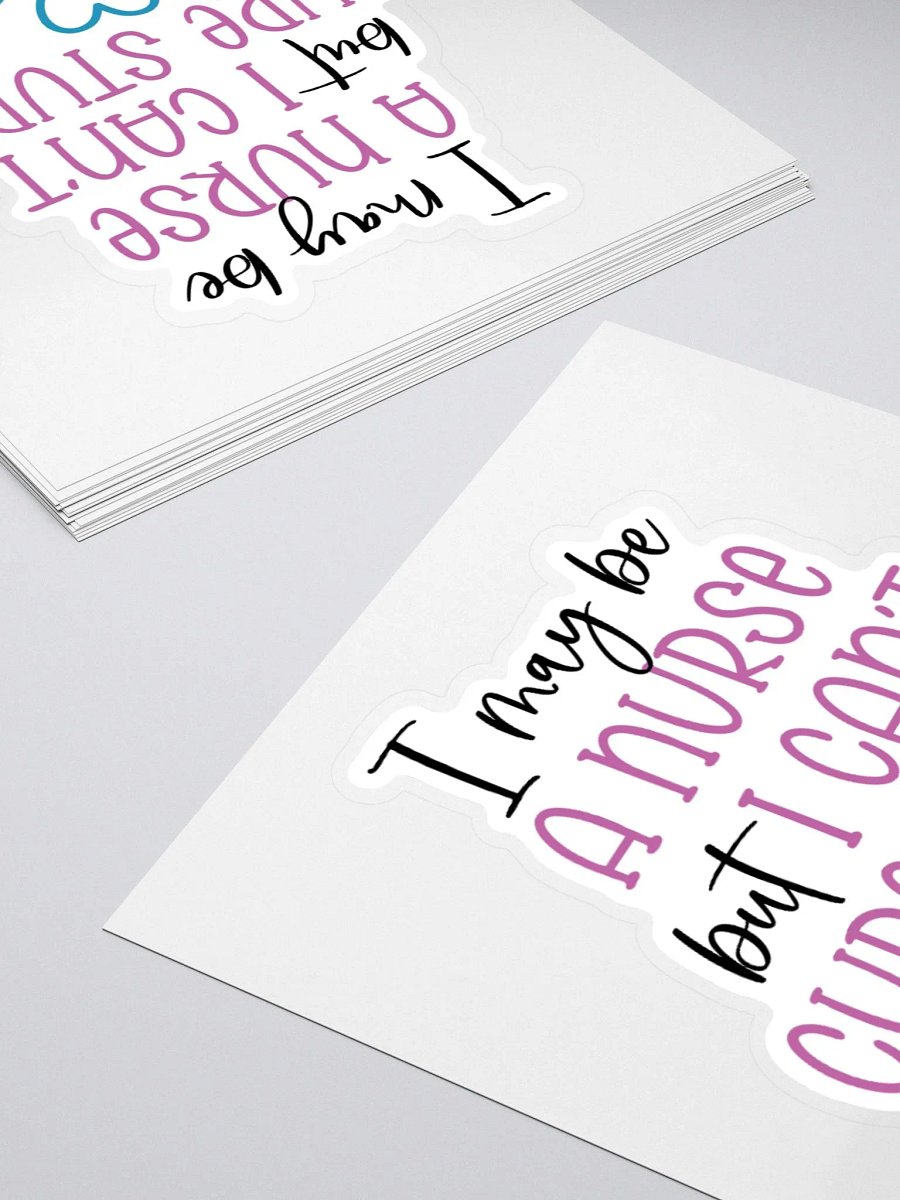 I may be
A NURSE
but I CAN'T
I may be
A NURSE
but I CAN'T